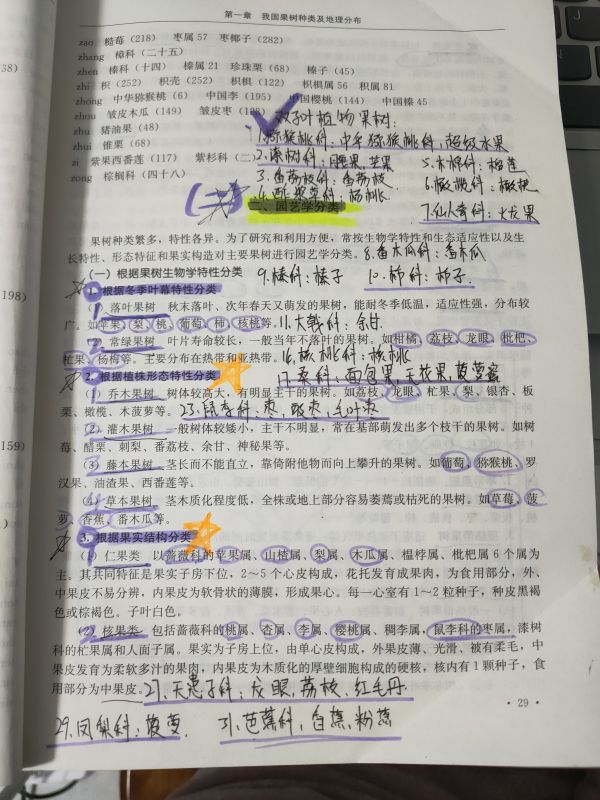 第一章 我国果树种类及地理分布
zao 糙莓（218） 枣属 57 枣椰子（282）
zhang 樟科（二十五）
zhen 榛科（十四） 榛属 21 珍珠栗（68） 榛子（45）
zhi 枳（252） 枳壳（252） 枳椇（122） 枳椇属 56 枳属 81
zhong 中华猕猴桃（6） 中国李（195） 中国樱桃（144） 中国榛 45
zhou 皱皮木瓜（149） 皱皮枣（128）
双子叶植物果树：
zhu 猪油果（48）
1.猕猴桃科：中华猕猴桃科，超级水果
zhui 锥栗（68）
2.漆树科：腰果、芒果
5.木棉科：榴莲
zi 紫果西番莲（117） 紫杉科（二）
3.番荔枝科：番荔枝
6.橄榄科：橄榄
zong 棕榈科（四十八）
4.酢浆草科：杨桃
7.仙人掌科：火龙果
(二)
二、园艺学分类
果树种类繁多，特性各异。为了研究和利用方便，常按生物学特性和生态适应性以及生
长特性、形态特征和果实构造对主要果树进行园艺学分类。
8.番木瓜科：番木瓜
（一）根据果树生物学特性分类
9.榛科：榛子
10.柿科：柿子
1. 根据冬季叶幕特性分类
（1）落叶果树 秋末落叶、次年春天又萌发的果树，能耐冬季低温，适应性强，分布较
广。如苹果、梨、桃、葡萄、柿、核桃等。
11.大戟科：余甘
（2）常绿果树 叶片寿命较长，一般当年不落叶的果树。如柑橘、荔枝、龙眼、枇杷、
杧果、杨梅等。主要分布在热带和亚热带。
16.核桃科：核桃
2. 根据植株形态特性分类
17.桑科：面包果、无花果、菠萝蜜
（1）乔木果树 树体较高大，有明显主干的果树。如荔枝、龙眼、杧果、梨、银杏、板
栗、橄榄、木菠萝等。
23.鼠李科：枣、酸枣、毛叶枣
（2）灌木果树 一般树体较矮小，主干不明显，常在基部萌发出多个枝干的果树。如树
莓、醋栗、刺梨、番荔枝、余甘、神秘果等。
（3）藤本果树 茎长而不能直立，靠倚附他物而向上攀升的果树。如葡萄、猕猴桃、罗
汉果、油渣果、西番莲等。
（4）草本果树 茎木质化程度低，全株或地上部分容易萎蔫或枯死的果树。如草莓、菠
萝、香蕉、番木瓜等。
3. 根据果实结构分类
（1）仁果类 以蔷薇科的苹果属、山楂属、梨属、木瓜属、榅桲属、枇杷属 6 个属为
主。其共同特征是果实子房下位，2～5 个心皮构成，花托发育成果肉，为食用部分，外、
中果皮不易分辨，内果皮为软骨状的薄膜，形成果心。每一心室有 1～2 粒种子，种皮黑褐
色或棕褐色。子叶白色。
（2）核果类 包括蔷薇科的桃属、杏属、李属、樱桃属、稠李属，鼠李科的枣属，漆树
科的杧果属和人面子属。果实为子房上位，由单心皮构成，外果皮薄、光滑、被有柔毛，中
果皮发育为柔软多汁的果肉，内果皮为木质化的厚壁细胞构成的硬核，核内有 1 颗种子，食
用部分为中果皮。
27.无患子科：龙眼、荔枝、红毛丹
· 29 ·
29.凤梨科：菠萝
31.芭蕉科，香蕉，粉蕉
38)
198)
159)